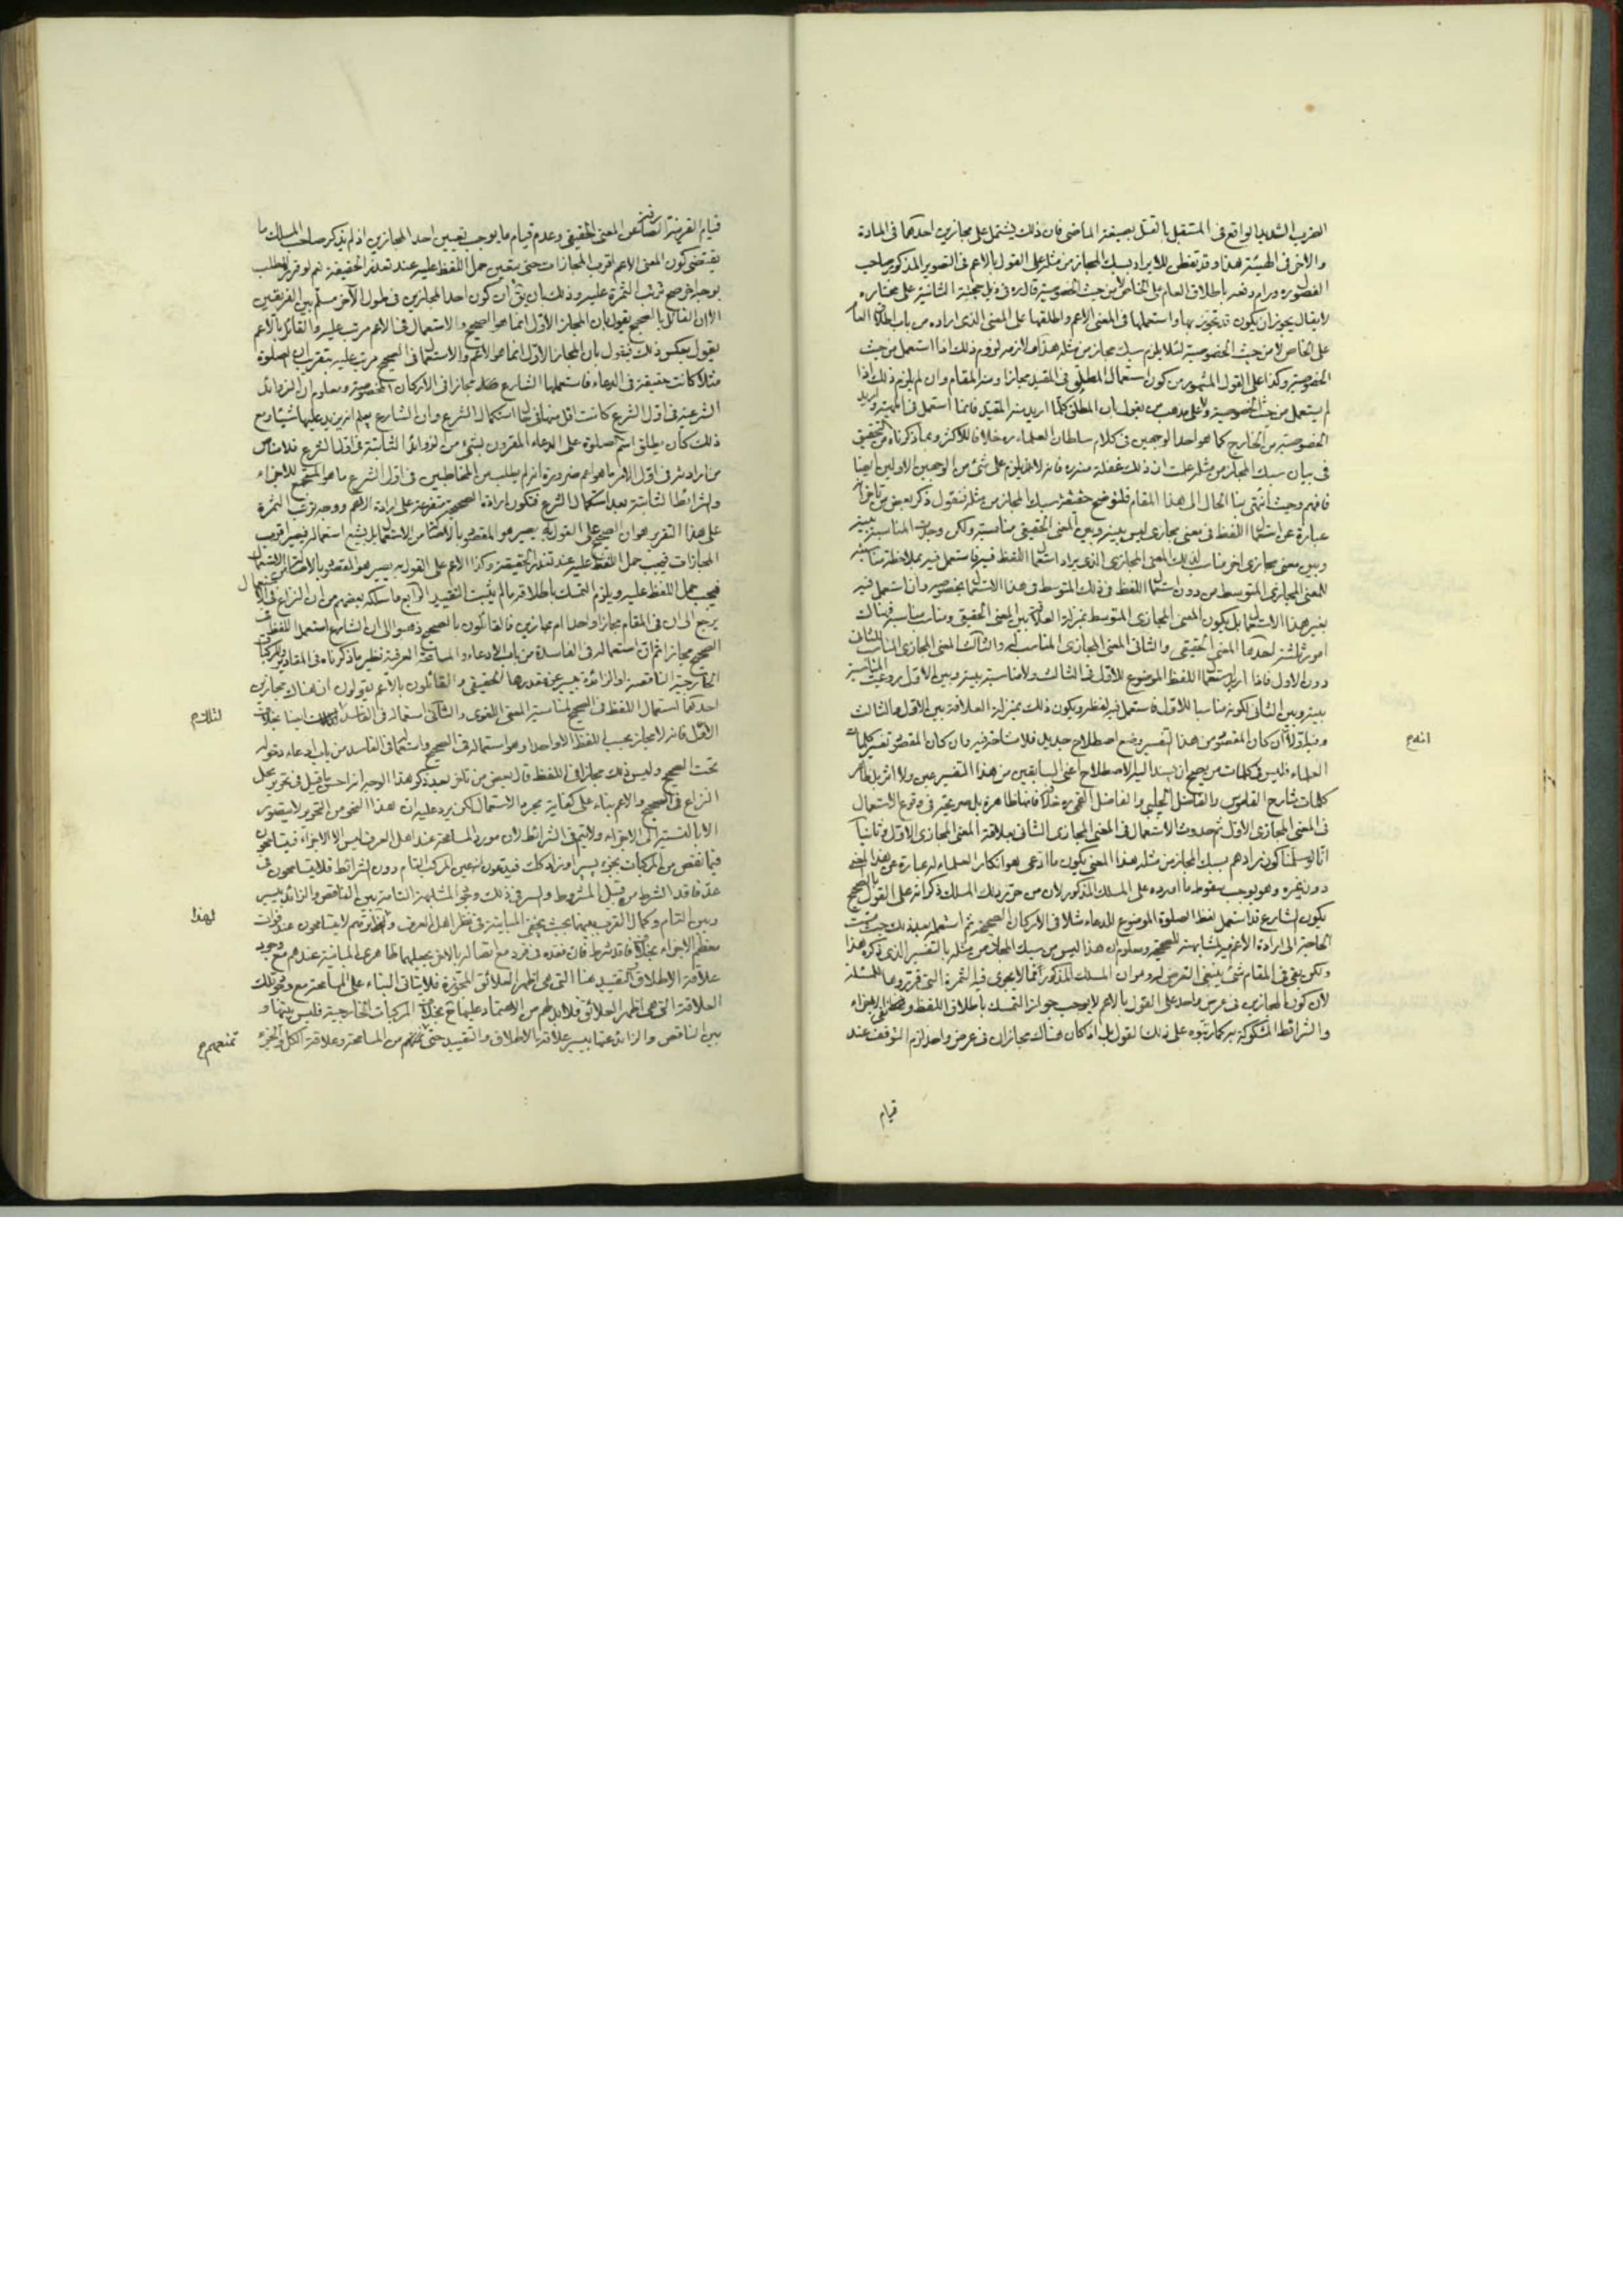 الضرب الشديد الواقع في المستقبل بالقتل بصيغة الماضي فان ذلك يشتمل على مجازين احدهما في المادة
والاخر في الهيئة هذا وقد تفطن للايراد بسبك المجاز من مثله على القول بالاعم في التصوير المذكور صاحب
ورام دفعه باطلاق العام على الخاص لا من حيث الخصوصية قال ره في ذيل حجته الثانية على مختاره
لا يقال يجوز ان يكون قد تجوز بها واستعملها في المعنى الاعم واطلقها على المعنى الذي اراده من باب اطلاق العام
على الخاص لا من حيث الخصوصية لئلا يلزم سبك مجاز من مثله لزوم ذلك اذا استعمل من حيث
الخصوصية وكذا على القول المشهور من كون استعمال المطلق في المقيد مجازا وان لم يلزم ذلك اذا
لم يستعمل من حيث الخصوصية ولا على مذهب من يقول بان المطلق كلما اريد منه المقيد فانما استعمل في الماهية واريد
الخصوصية من الخارج كما هو احد الوجهين في كلام سلطان العلماء ره خلافا للاكثر وبما ذكرناه من التحقيق
في بيان سبك المجاز من مثله علمت ان ذلك غفلة منه ره فانه يلزم على شئ من الوجهين الاولين ايضا
فافهم وحيث انتهى بنا الحال الى هذا المقام فلنوضح حقيقة سبك المجاز من مثله فنقول ذكر بعض من تأخر انه
عبارة عن استعمال اللفظ في معنى مجازي ليس بينه وبين المعنى الحقيقي مناسبة ولكن وجدت المناسبة بينه
وبين معنى مجازي اخر مناسب لذلك المعنى المجازي الذي يراد استعمال اللفظ فيه فاستعمل فيه بملاحظة مناسبته
للمعنى المجازي المتوسط من دون استعمال اللفظ في ذلك المتوسط في هذا الاستعمال بخصوصه وان استعمل فيه
بغير هذا الاستعمال بل يكون المعنى المجازي المتوسط بمنزلة العلاقة بين المعنى الحقيقي ومناسب مناسبه فهناك
امور ثلثة احدها المعنى الحقيقي والثاني المعنى المجازي المناسب له والثالث المعنى المجازي المناسب للثاني
دون الاول فاذا اريد استعمال اللفظ الموضوع للاول في الثالث ولا مناسبة بينه وبين الاول روعيت المناسبة
بينه وبين الثاني لكونه مناسبا للاول فاستعمل فيه لفظه ويكون ذلك بمنزلة العلاقة بين الاول والثالث
وفيه اولا ان كان المقصود من هذا التفسير وضع اصطلاح جديد فلا مشاحة فيه وان كان المقصود تفسير كلمات
العلماء فليس في كلمات من يصح ان يسند اليه الاصطلاح اعني السابقين من هذا التفسير عين ولا اثر بل ظاهر
كلمات شارح القاموس والفاضل الجلبي والفاضل القمي ره خلافه فانها ظاهرة بل صريحة في وقوع الاستعمال
في المعنى المجازي الاول ثم حدوث الاستعمال في المعنى المجازي الثاني بعلاقة المعنى المجازي الاول وثانيا
انا لو سلمنا كون مرادهم بسبك المجاز من مثله هذا المعنى يكون ما ادعي هو انكار العلماء له عبارة عن هذا المعنى
دون غيره وهو يوجب سقوط ما اورده على المسلك المذكور لان من حرر ذلك المسلك ذكر انه على القول بالصحيح
يكون الشارع قد استعمل لفظ الصلوة الموضوع للدعاء مثلا في الاركان الصحيحة ثم استعمله بعد ذلك حيث مست
الحاجة الى ارادة الاعم فيه لمشابهته للصحيحة ومعلوم ان هذا ليس من سبك المجاز من مثله بالتفسير الذي ذكره هذا
ولكن بقي في المقام شئ ينبغي التعرض له وهو ان المسلك المذكور انما لا يجري فيه الثمرة التي قرروها للمسئلة
لان كون المجازين في عرض واحد على القول بالاعم لا يوجب جواز التمسك باطلاق اللفظ ونفي الاجزاء
والشرائط المشكوكة به كما رتبوه على ذلك القول بل اذ كان هناك مجازان في عرض واحد لزم التوقف عند
انه م
قيام
قيام القرينة الصارفة عن المعنى الحقيقي وعدم قيام ما يوجب تعيين احد المجازين اذ لم يذكر صاحب المسلك ما
يقتضي كون المعنى الاعم اقرب المجازات حتى يتعين حمل اللفظ عليه عند تعذر الحقيقة نعم لو قرر المطلب
بوجه اخر صح ترتب الثمرة عليه وذلك بان يق ان كون احد المجازين في طول الآخر مسلم بين الفريقين
الا ان القائل بالصحيح يقول بان المجاز الاول انما هو الصحيح والاستعمال في الاعم مرتب عليه والقائل بالاعم
يقول بعكس ذلك فيقول بان المجاز الاول انما هو الاعم والاستعمال في الصحيح مرتب عليه بتقريب ان الصلوة
مثلا كانت حقيقة في الدعاء فاستعملها الشارع مجازا في الاركان المخصوصة ومعلوم ان الزوائد
الشرعية في اول الشرع كانت اقل منها في حال استكمال الشرع وان الشارع يعلم انه يزيد عليها شيئا ومع
ذلك كان يطلق اسم الصلوة على الدعاء المقرون بشئ من الزوائد الثابتة في اول الشرع فلا مناص
من ارادته في اول الامر ما هو اعم ضرورة انه لم يطلب من المخاطبين في اول الشرع ما هو المستجمع للاجزاء
والشرائط الثابتة بعد استكمال الشرع فتكون ارادة الصحيح متفرعة على ارادة الاعم ووجه ترتب الثمرة
على هذا التقرير هو ان الصحيح على القول به يصير هو المقصود بالاصالة من الاستعمال بل يشيع استعماله فيصير اقرب
المجازات فيجب حمل اللفظ عليه عند تعذر الحقيقة وكذا الاعم على القول به يصير هو المقصود بالاصالة من الاستعمال
فيجب حمل اللفظ عليه ويلزم التمسك باطلاقه ما لم يثبت التقييد الرابع ما سلكه بعضهم من ان النزاع في
يرجع الى ان في المقام مجازا واحدا ام مجازين فالقائلون بالصحيح ذهبوا الى ان الشارع استعمل اللفظ في
الصحيح مجازا ثم ان استعماله في الفاسدة من باب الادعاء والمسامحة العرفية نظير ما ذكرناه في المقادير والمركبات
الخارجية الناقصة او الزائدة بيسير عن مقدرها الحقيقي والقائلون بالاعم يقولون ان هناك مجازين
احدهما استعمال اللفظ في الصحيح لمناسبة المعنى اللغوي والثاني استعماله في الفاسد ايضا بخلاف
الاول فانه لا مجاز بحسبه للفظ الا واحدا وهو استعماله في الصحيح واستعماله في الفاسد من باب ادعاء دخوله
تحت الصحيح وليس ذلك مجازا في اللفظ قال بعض من تأخر بعد ذكر هذا الوجه انه احسن ما قيل في تحرير محل
النزاع في الصحيح والاعم بناء على كفاية مجرد الاستعمال لكن يرد عليه ان هذا النحو من التحرير لا يتصور
الا بالنسبة الى الاجزاء ولا يتم في الشرائط لان مورد المسامحة عند اهل العرف ليس الا الاجزاء فيتسامحون
فيما نقص من المركبات بجزء يسير او زاد كك فيدعون انه عين المركب التام دون الشرائط فلا يتسامحون في
عد فاقد الشرط من قبيل المشروط والسر في ذلك وجود المشابهة التامة بين الناقص والزائد بيسير
وبين التام وكمال القرب بينهما بحيث يختفي المباينة في نظر اهل العرف ولهذا تريهم لا يتسامحون عند فوات
معظم الاجزاء بخلاف فاقد شرط فان فقده في فرد مع اتصاله بالاخر يجعلهما ظاهري المباينة عندهم مع وجود
علاقة الاطلاق والتقييد هنا التي هي اظهر العلائق المجوزة فلا يتأتى البناء على المسامحة مع وجود تلك
العلاقة التي هي اظهر العلائق فلا بد لهم من الاعتماد عليها ح بخلاف المركبات الخارجية فليس بينها و
بين الناقص والزائد عنها بيسير علاقة الاطلاق والتقييد حتى تمنعهم من المسامحة وعلاقة الكل والجزء
لهذا
تمنعهم م